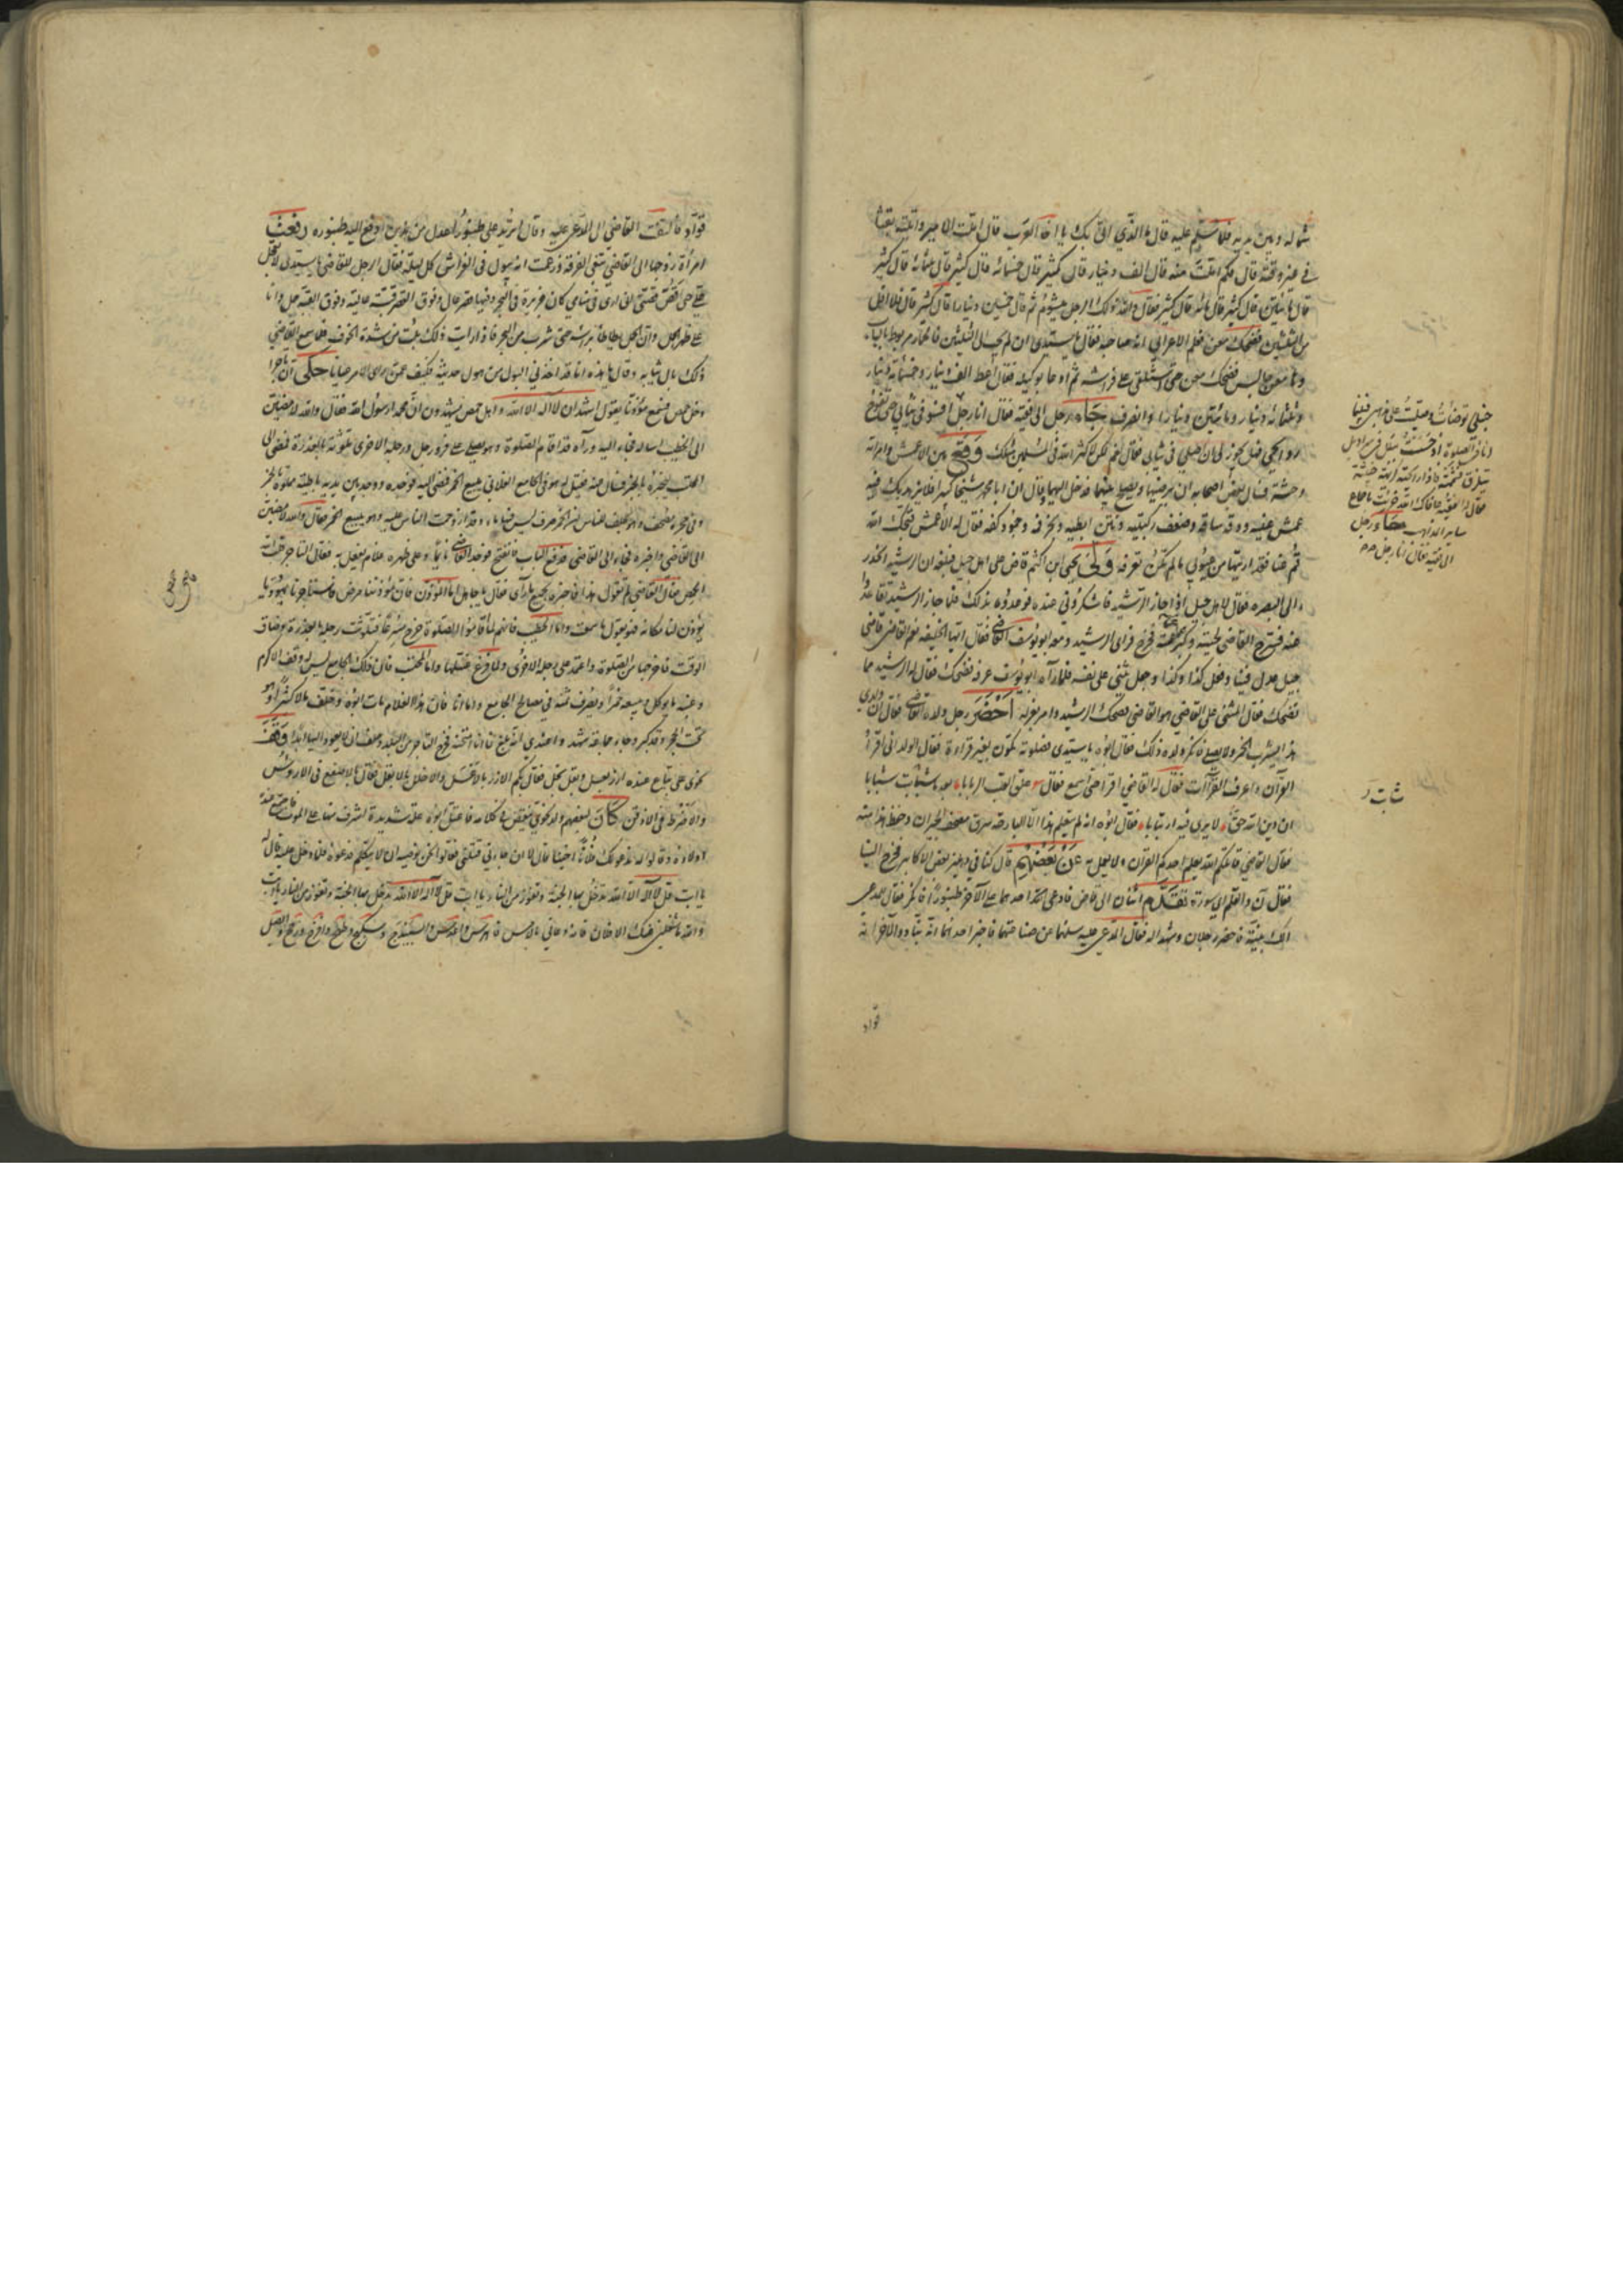 شماله وبين يديه فلما سلم عليه قال ما الذي اتى بك يا اخا العرب قال املت الامير واتيته بقثا
في غير وقته قال فكم املت منه قال الف دينار قال كثير قال خمسمائة قال كثير قال ثلثمائة قال كثير
قال مائتين قال كثير قال مائة قال كثير فقال والله لقد كان ذلك الرجل ميشوم ثم قال خمسين دينارا قال كثير قال فلا اقل
من الثلثين فضحك معن فعلم الاعرابي انه صاحبه فقال يا سيدي ان لم تجب الى الثلثين فالحمار مربوط بالباب
وها معن جالس فضحك معن حتى استلقى على فراشه ثم دعا بوكيله فقال اعط الف دينار وخمسمائة دينار
وثلثمائة دينار ومائتين دينارا وانصرف جاء رجل الى فقيه فقال انا رجل افسو في ثيابي حتى تفوح
روايحي فهل يجوز لي ان اصلي في ثيابي فقال نعم لكن لا كثر الله في المسلمين مثلك وقع بين الاعمش وامراته
وحشة فسأل بعض اصحابه ان يرضيها ويصلح بينهما فدخل اليها وقال ان ابا محمد شيخا كبير فلا يزهدك فيه
عمش عينيه ودقة ساقه وضعف ركبتيه ونتن ابطيه وبخر فمه وجمود كفه فقال له الاعمش قبحك الله
قم عنا فقد اريتها من عيوبي ما لم تكن تعرفه ولى يحيى ابن اكثم قاض على اهل جبل فبلغه ان الرشيد انحدر
الى البصره فقال لاهل جبل اذا اجاز الرشيد فاشكروني عنده فوعدوه بذلك فلما جاز الرشيد تقاعدوا
عنه فسرح القاضي لحيته وكبر عمته فخرج فراى الرشيد ومعه ابو يوسف القاضي فقال ايها الخليفة نعم القاضي قاضي
جبل عدل فينا وفعل كذا وكذا وجعل يثني على نفسه فلما رآه ابو يوسف عرفه فضحك فقال له الرشيد مما
تضحك فقال المثني على القاضي هو القاضي فضحك الرشيد وامر بعزله احضر رجل ولده القاضي فقال ان ولدي
هذا يشرب الخمر ولا يصلي فانكر ولده ذلك فقال ابوه يا سيدي فصلوة تكون بغير قراءة فقال الولد اني اقرأ
القرآن واعرف القراآت فقال له القاضي اقرا حتى اسمع فقال علق القلب الربابا بعد ما شابت شبابا
ان دين الله حق لا يرى فيه ارتيابا فقال ابوه انه لم يتعلم هذا الا البارحة سرق مصحف الجيران وحفظ هذا منه
فقال القاضي قاتلكم الله يتعلم احدكم القرآن ولا يعمل به عن بعضهم قال كنا في دهليز بعض الاكابر فخرج الينا
فقال ن والقلم اي سورة تقدم اثنان الى قاض فادعى احدهما على الآخر طنبورا فانكر فقال للمدعي
الك بينة فاحضر رجلان وشهدا له فقال المدعى عليه سلهما عن صناعتهما فاخبر احدهما انه نباذ والآخر انه
قواد
حنبلي توضأت وصليت على مذهبي فبينا
انا في الصلوة اذ حسست ببلل في سراويلي
يتلزق فشممته فاذا رائحته كريهة خبيثة
فقال الفقيه عافاك الله خريت باجماع
ساير المذاهب جاء رجل
الى فقيه فقال انا رجل
شابت
قواد فالتفت القاضي الى المدعى عليه وقال اتريد على طنبور اعدل من هذين ادفع اليه طنبوره رفعت
امرأة زوجها الى القاضي تبغي الفرقة وزعمت انه يبول في الفراش كل ليلة فقال الرجل للقاضي يا سيدي لا تعجل
علي حتى اقص قصتي اني ارى في منامي كان جزيرة في البحر وفيها قصر عال وفوق القصر قبة عالية وفوق القبة جمل وانا
على ظهر الجمل وان الجمل يطاطئ براسه حتى يشرب من البحر فاذا رايت ذلك بلت من شدة الخوف فلما سمع القاضي
ذلك بال ثيابه وقال يا هذه انا قد اخذني البول من هول حديثه فكيف عمن يرى الامر عيانا حكى ان تاجرا
دخل حمص فسمع مؤذنا يقول اشهد ان لا اله الا الله واهل حمص يشهدون ان محمدا رسول الله فقال والله لامضين
الى الخطيب اساله فجاء اليه ورآه قد اقام الصلوة وهو يصلي على فرد رجل ورجله الاخرى ملوثة بالعذرة فمضى الى
المحتسب ليخبره بالخبر فسال عنه فقيل له هو في الجامع الفلاني يبيع الخمر فمضى اليه فوجده وبين يديه باطية مملوة خمر
وفي حجره مصحف وهو يحلف للناس ان الخمر صرف ليس فيها ماء وقد ازدحمت الناس عليه وهو يبيع الخمر فقال والله لامضين
الى القاضي واخبره فجاء الى القاضي فدفع الباب فانفتح فوجد القاضي نائما وعلى ظهره غلام يفعل به فقال التاجر قلب الله
حمص فقال القاضي لم تقول هذا فاخبره بجميع ما رآى فقال يا جاهل اما المؤذن فان مؤذننا مرض فاستاجرنا يهوديا
يؤذن لنا مكانه فهو يقول ما سمعت واما الخطيب فانهم لما قاموا للصلوة خرج مسرعا فتلوثت رجله بالعذرة وضاق
الوقت فاخرجها من الصلوة واعتمد على رجله الاخرى ولما فرغ غسلها واما المحتسب فان ذلك الجامع ليس له وقف الا كرم
وعنبه ما يؤكل فهو يعصره خمرا ويبيعه ويصرف ثمنه في مصالح الجامع واما انا فان هذا الغلام مات ابوه وخلف مالا كثيرا وهو
تحت الحجر وقد كبر وجاء جماعة شهدوا عندي انه بلغ فانا امتحنه فخرج التاجر من البلد وحلف انه لا يعود اليها ابدا وقف
نحوى على بياع عنده ارز بعسل وبقل بخل فقال بكم الارز بالاعسل والاخلل بالابقل فقال بالاصفع في الارؤس
والاضرط في الاذقن كان لبعضهم ولد نحوي يتقعر في كلامه فاعتل ابوه علة شديدة اشرف منها على الموت فاجتمع عنده
اولاده وقالوا له ندعو لك فلانا اخينا قال لا ان جاءني قتلني فقالوا نحن نوصيه ان لا يتكلم فدعوه فلما دخل عليه قال له
يا ابت قل لا اله الا الله تدخل بها الجنة وتفوز من النار يا ابت قل لا اله الا الله تدخل بها الجنة وتفوز من النار يا ابت
والله ما شغلني عنك الا فلان فانه دعاني بالامس فاهرس واعدس واستبذج وسكبج وطهبج وافرج ودجج وابصل